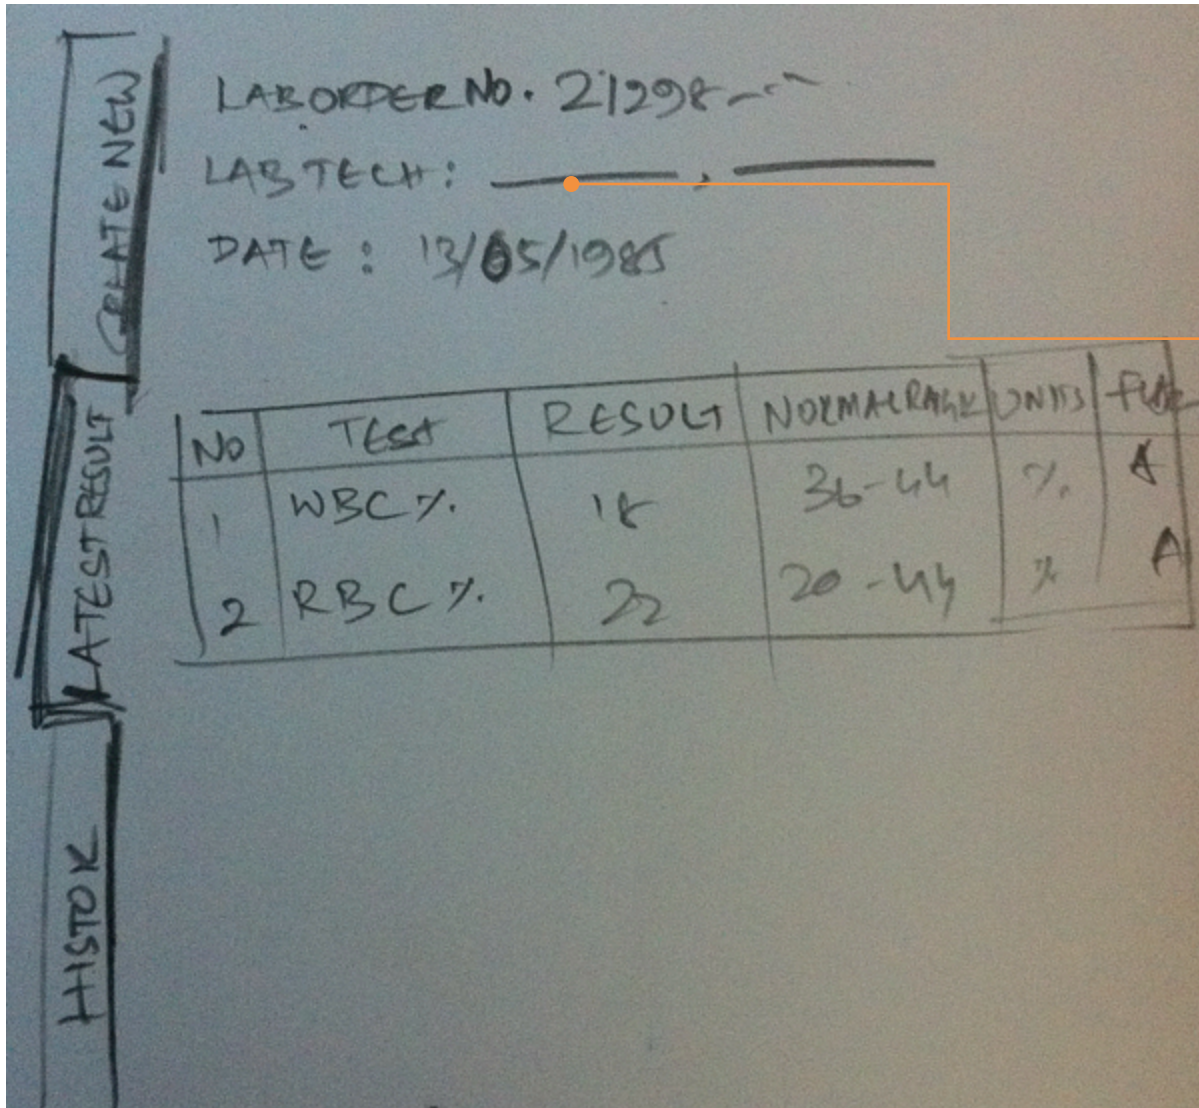 CREATE NEW
LATEST RESULT
HISTOR
LAB ORDER NO. 21298
LAB TECH: ,
DATE : 13/05/1985
NO TEST RESULT UNITS
1 WBC %. 18 36-44 %. A
2 RBC %. 22 20-44 % A